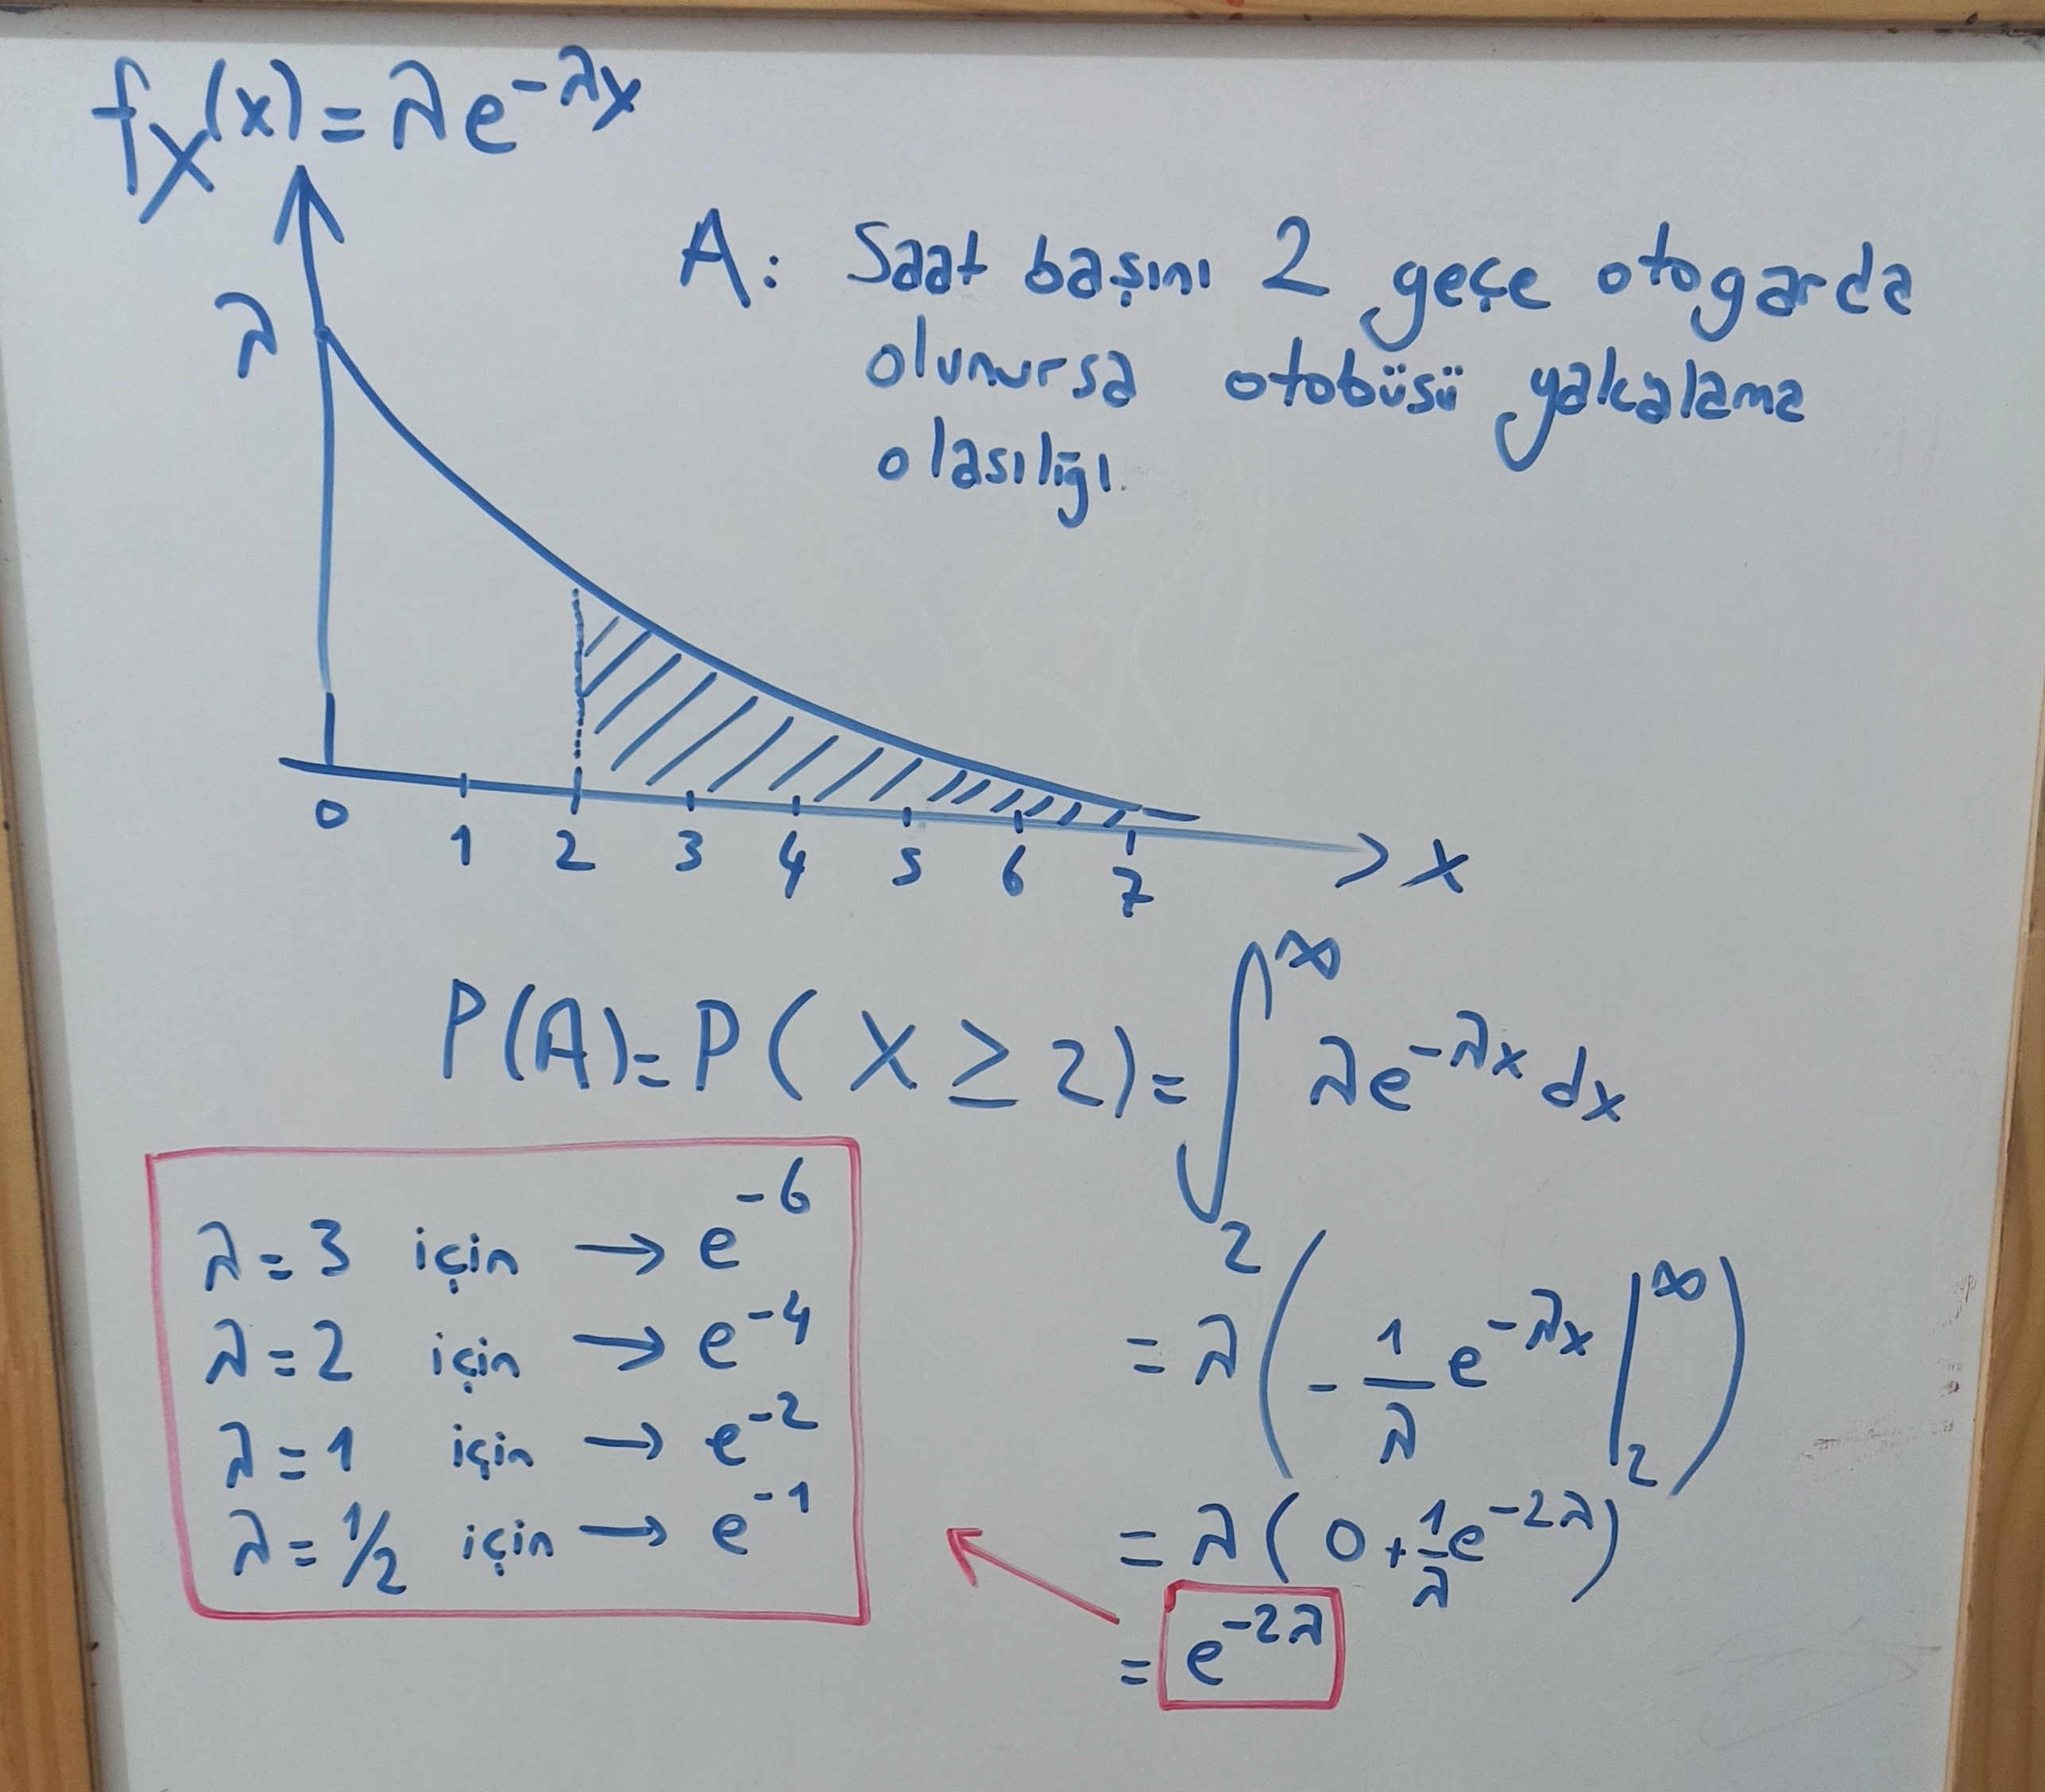 fX(x) = λe^-λx
A: Saat başını 2 geçe otogarda
olunursa otobüsü yakalama
olasılığı.
λ
0 1 2 3 4 5 6 7 x
P(A) = P( X ≥ 2) = ∫_2^∞ λe^-λx dx
= λ( -1/λ e^-λx |_2^∞ )
= λ( 0 + 1/λ e^-2λ )
= e^-2λ
λ = 3 için → e^-6
λ = 2 için → e^-4
λ = 1 için → e^-2
λ = 1/2 için → e^-1